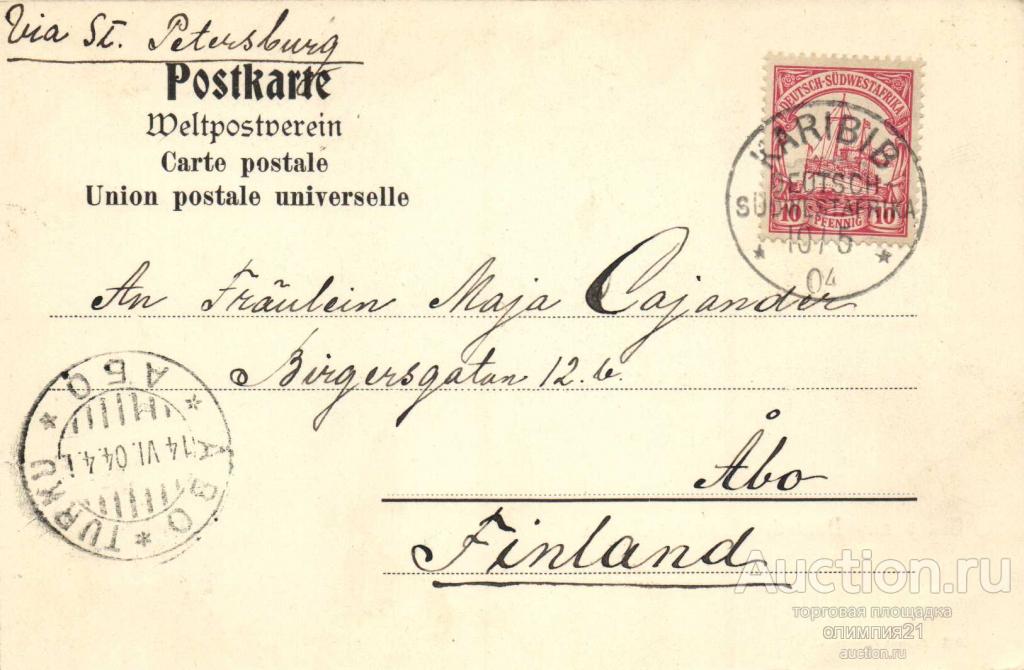 Via St. Petersburg
Postkarte
Weltpostverein
Carte postale
Union postale universelle
DEUTSCH-SÜDWESTAFRIKA
10 PFENNIG 10
KARIBIB
DEUTSCH-
SÜDWESTAFRIKA
* 19/5 *
04
An Fräulein Maja Cajander
Birgersgatan 12. b.
Åbo
Finland
ÅBO * TURKU * АБО *
14 VI. 04. 4.
Auction.ru
торговая площадка
олимпия21
auction.ru